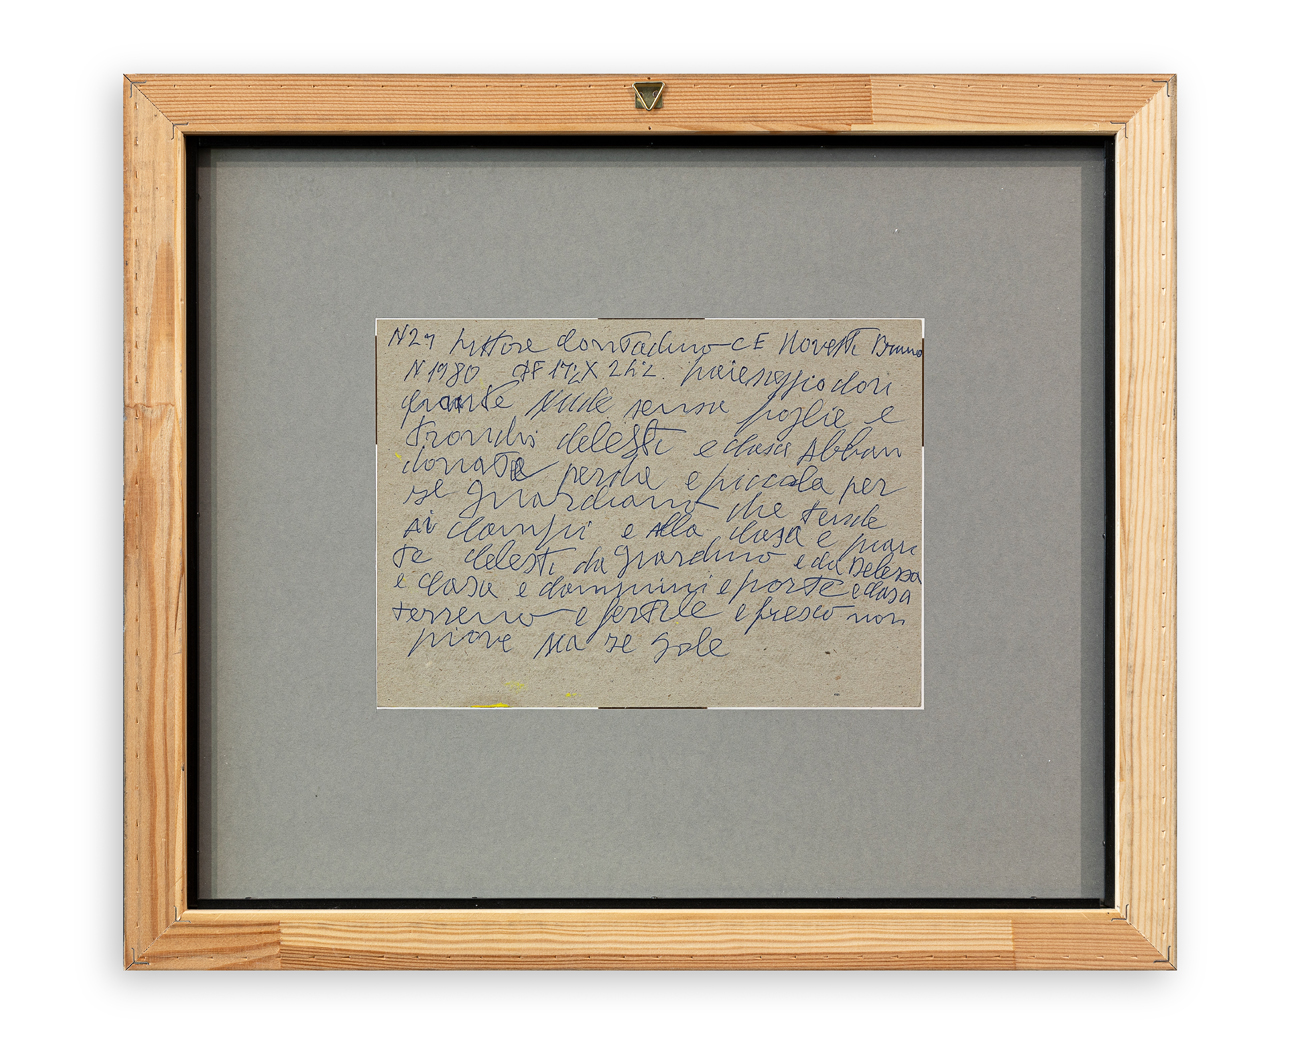 N29 pittore Contadino CE Novetti Bruno
N 1980 17½ X 24½ paiesaggio con
piante Nude sensa foglie e
tronchi celesti e casa Abban
donata perche e piccola per
se guardiano che tende
Ai campi e Alla casa e pian
te celesti da giardino e da Belessa
e casa e cammini e porte e casa
terreno e fertile e fresco non
piove ma se sole